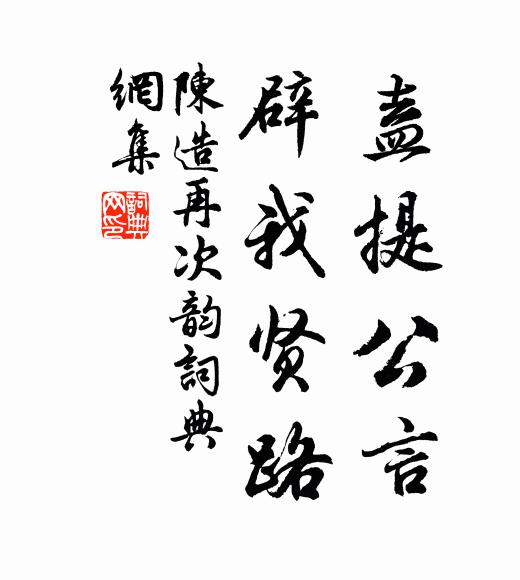 盍提公言
辟我贤路
陳造再次韵詞典
網集
詞典
网印